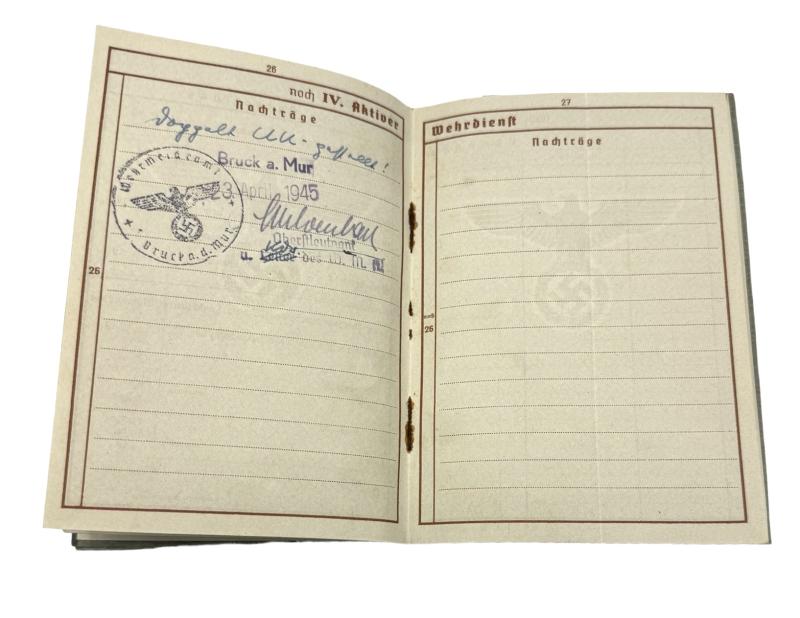 26
noch IV. Aktiver
Nachträge
Doppelt UK-gestellt!
Bruck a. Mur
23. April 1945
Wehrmeldeamt
Bruck a. d. Mur
Oberstleutnant
u. des W. M.
26
27
Wehrdienst
Nachträge
noch
26